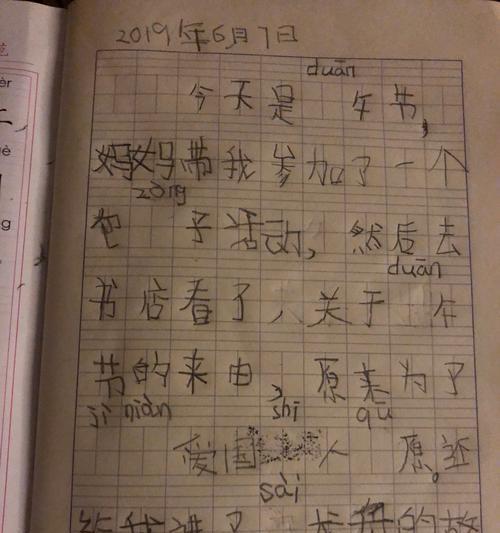 2019年6月7日
duān
今天是 午节,
妈妈带我参加了一个
zòng
包 子活动,然后去
duān
书店看了 关于 午
节的来由,原来为了
jì niàn shī qū
爱国 人 原。还
sài
给我讲了 龙舟的